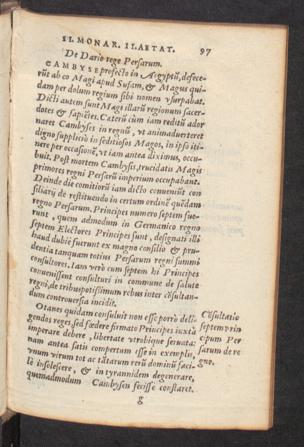 II. MONAR. II. AETAT. 97
De Dario rege Persarum.
CAMBYSE profecto in Aegyptũ, defece-
rũt ab eo Magi apud Susam, & Magus qui-
dam per dolum regium sibi nomen vsurpabat.
Dicti autem sunt Magi illarũ regionum sacer-
dotes & sapiẽtes. Caterũ cùm iam reditũ ador
naret Cambyses in regnũ, vt animaduerteret
digno supplicio in seditiosos Magos, in ipso iti-
nere per occasionẽ, vt iam antea diximus, occu-
buit. Post mortem Cambysis, trucidatis Magis
primores regni Persarũ imperium occupabant.
Deinde die comitiorũ iam dicto conueniũt con
siliarij de restituendo in certum ordinẽ quẽdam
regno Persarum. Principes numero septem fue-
runt, quem admodum in Germanico regno
septem Electores Principes sunt, designati illi
haud dubiè fuerunt ex magno consilio & pru-
dentia tanquam totius Persarum regni summi
consultores. Iam verò cum septem hi Principes
conuenissent consulturi in commune de salute
regni, de tribus potissimum rebus inter cõsultan-
dum controuersia incidit.
Otanes quidam consuluit non esse porrò deli-
gendos reges sed fœdere firmato Principes iuxtà
imperare debere, libertate vtrobique seruata:
nam antea satis compertum esse in exemplis,
vnum virum tot ac tãtarum rerũ dominũ faci-
lè insolescere, & in tyrannidem degenerare,
quemadmodum Cambysen fecisse constaret.
g
Cõsultatio
septem prin
cipum Per
sarum de re
gno.